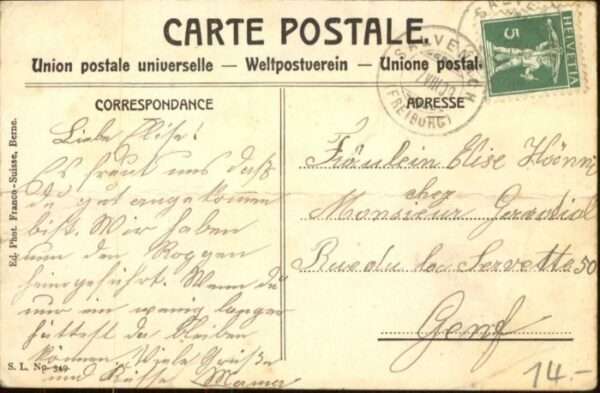 CARTE POSTALE.
Union postale universelle — Weltpostverein — Unione postale
CORRESPONDANCE
ADRESSE
Liebe Elise!
Es freut uns daß
du gut angekommen
bist. Wir haben
nun den Roggen
heimgeführt. Wenn du
nur ein wenig länger
hättest da bleiben
können. Viele Grüße
und Küsse Mama
Fräulein Elise
chez
Monsieur
Rue du la Servette 50
Genf
HELVETIA
5
SALVENACH
(FREIBURG)
Ed. Phot. Franco-Suisse, Berne.
S. L. No. 349
14.-